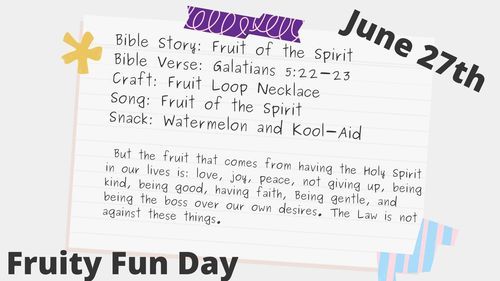 June 27th
Bible Story: Fruit of the Spirit
Bible Verse: Galatians 5:22-23
Craft: Fruit Loop Necklace
Song: Fruit of the Spirit
Snack: Watermelon and Kool-Aid
But the fruit that comes from having the Holy Spirit
in our lives is: love, joy, peace, not giving up, being
kind, being good, having faith, Being gentle, and
being the boss over our own desires. The Law is not
against these things.
Fruity Fun Day